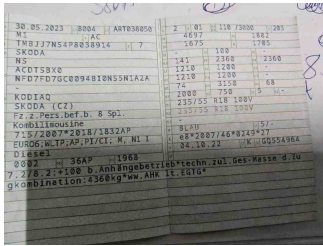 30.05.2023 8004 ART038050
M1 AC
TMBJJ7NS4P8038914 7
SKODA
NS
ACDTSBX0
NFD7FD7GC0094BI0N55N1A2A
-
KODIAQ
SKODA (CZ)
Fz.z.Pers.bef.b. 8 Spl.
Kombilimousine
715/2007*2018/1832AP
EURO6;WLTP;AP;PI/CI; M, N1 I
Diesel
0002 36AP 1968
7.2/8.2:+100 b.Anhängebetrieb*techn.zul.Ges-Masse d.Zu
gkombination:4360kg*ww.AHK lt.EGTG*
2 01 110 /3800
4697 1882
1675 1705
- 100 -
141 2360 2360
1210 1200 -
1210 1200 -
74 3150 68
2000 750 5 -
235/55 R18 100V
235/55 R18 100V
-
BLAU 5/-
e8*2007/46*0249*27
04.10.22 K GQ554964